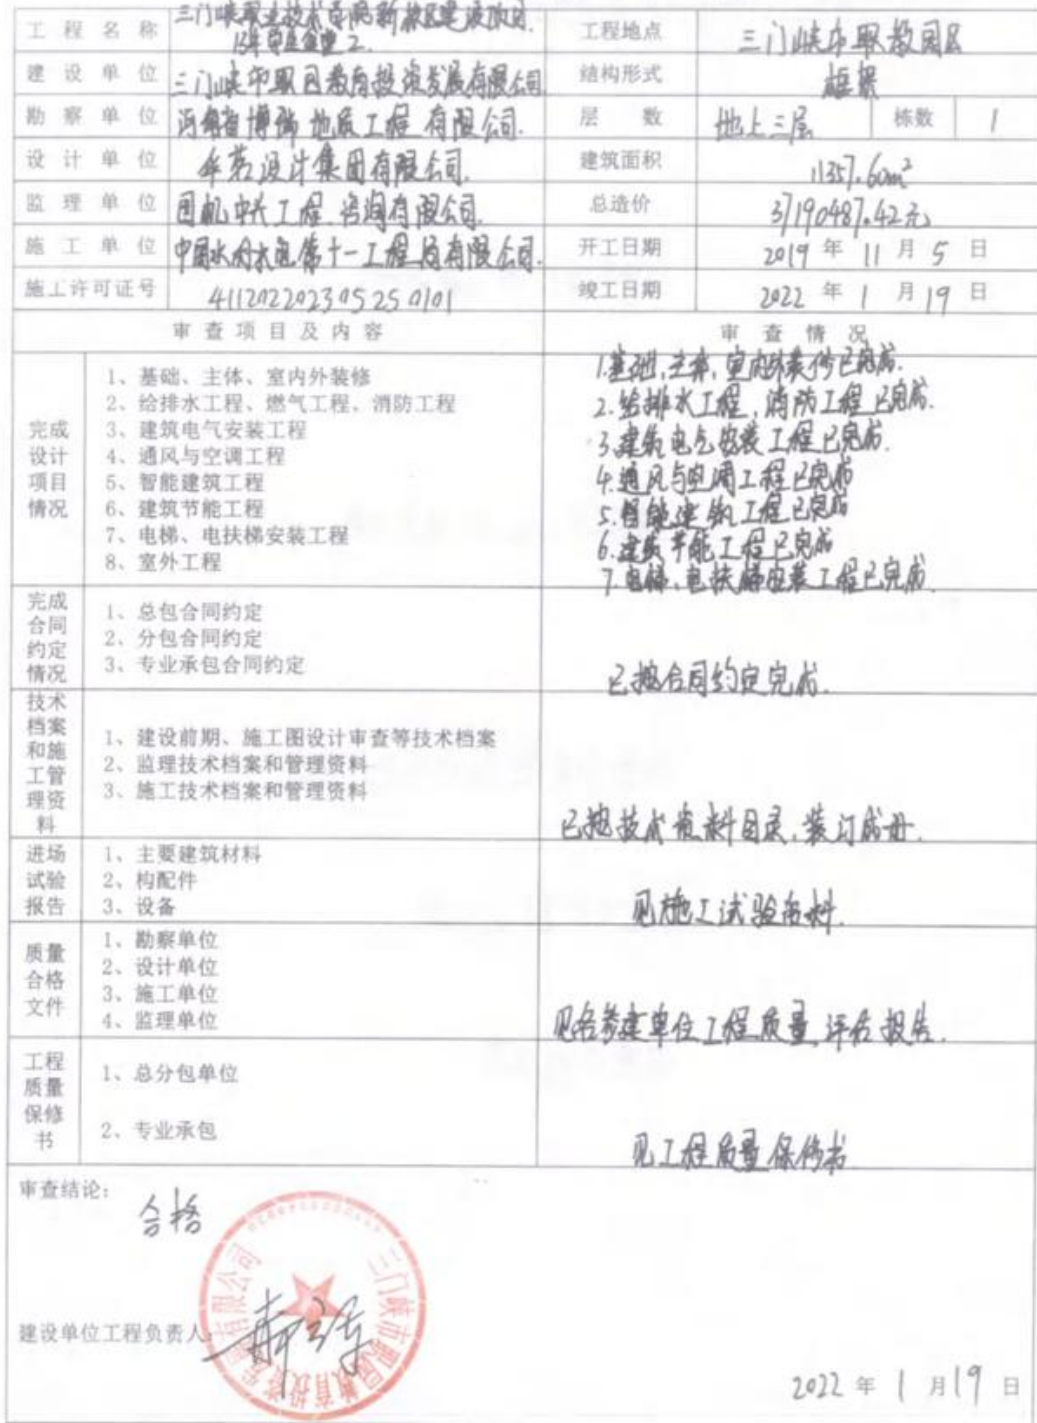 工程名称 三门峡职业技术学院新校区建设项目 工程地点 三门峡市职教园区
15# 2
建设单位 三门峡市职园教育投资发展有限公司 结构形式 框架
勘察单位 河南省博瑞地质工程有限公司. 层数 地上三层 栋数 1
设计单位 华茗设计集团有限公司. 建筑面积 11357.60m²
监理单位 国机中兴工程咨询有限公司. 总造价 37190487.42元
施工单位 中国水利水电第十一工程局有限公司. 开工日期 2019 年 11 月 5 日
施工许可证号 411202202305250101 竣工日期 2022 年 1 月 19 日
审查项目及内容 审查情况
完成设计项目情况
1、基础、主体、室内外装修
2、给排水工程、燃气工程、消防工程
3、建筑电气安装工程
4、通风与空调工程
5、智能建筑工程
6、建筑节能工程
7、电梯、电扶梯安装工程
8、室外工程
1.基础,主体,室内外装修已完成.
2.给排水工程,消防工程已完成.
3.建筑电气安装工程已完成.
4.通风与空调工程已完成
5.智能建筑工程已完成
6.建筑节能工程已完成
7.电梯、电扶梯安装工程已完成.
完成合同约定情况
1、总包合同约定
2、分包合同约定
3、专业承包合同约定
已按合同约定完成.
技术档案和施工管理资料
1、建设前期、施工图设计审查等技术档案
2、监理技术档案和管理资料
3、施工技术档案和管理资料
已按技术资料目录,装订成册.
进场试验报告
1、主要建筑材料
2、构配件
3、设备
见施工试验资料.
质量合格文件
1、勘察单位
2、设计单位
3、施工单位
4、监理单位
见各参建单位工程质量评估报告.
工程质量保修书
1、总分包单位
2、专业承包
见工程质量保修书
审查结论:
合格
三门峡市职园教育投资发展有限公司
建设单位工程负责人:
2022 年 1 月 19 日